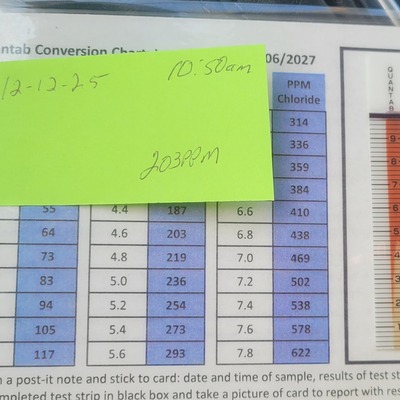 antab Conversion Chart
06/2027
12-12-25 10:50am
203PPM
PPM
Chloride
314
336
359
384
55 4.4 187 6.6 410
64 4.6 203 6.8 438
73 4.8 219 7.0 469
83 5.0 236 7.2 502
94 5.2 254 7.4 538
105 5.4 273 7.6 578
117 5.6 293 7.8 622
QUANTAB
9
8
7
6
5
4
3
2
1
n a post-it note and stick to card: date and time of sample, results of test st
mpleted test strip in black box and take a picture of card to report with res